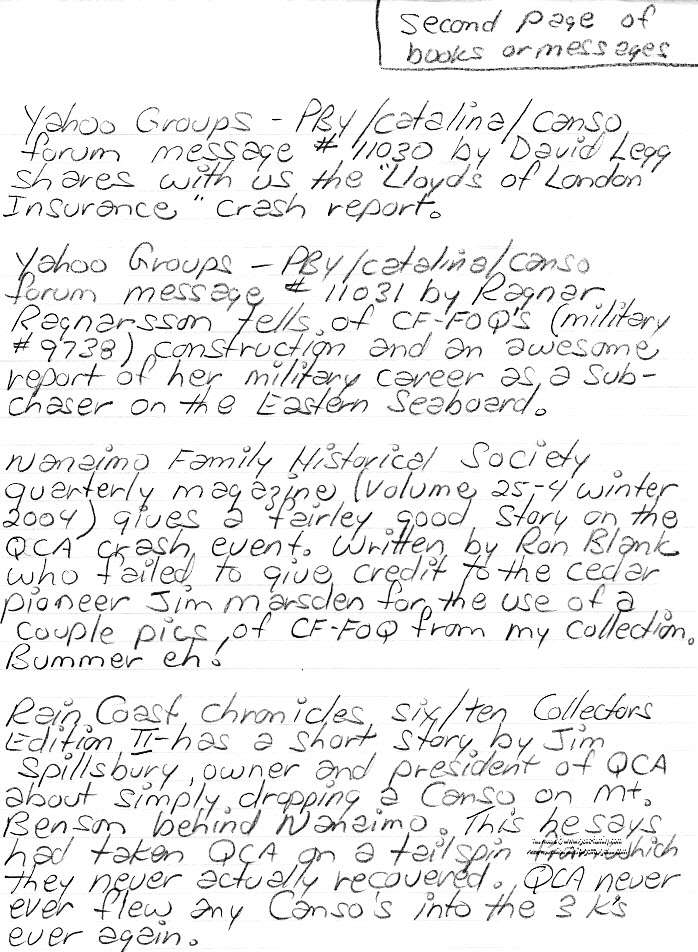 Second page of
books or messages
Yahoo Groups - PBY/catalina/canso
forum message # 11030 by David Legg
shares with us the "Lloyds of London
Insurance" crash report.
Yahoo Groups - PBY/catalina/canso
forum message # 11031 by Ragnar
Ragnarsson tells of CF-FOQ's (military
# 9738) construction and an awesome
report of her military career as a sub-
chaser on the Eastern Seaboard.
Nanaimo Family Historical Society
quarterly magazine (Volume 25-4 winter
2004) gives a fairley good story on the
QCA crash event. Written by Ron Blank
who failed to give credit to the cedar
pioneer Jim Marsden for the use of a
couple pics of CF-FOQ from my collection.
Bummer eh!
Rain Coast chronicles six/ten Collectors
Edition II-has a short story by Jim
Spillsbury, owner and president of QCA
about simply dropping a Canso on Mt.
Benson behind Nanaimo. This he says
had taken QCA on a tailspin which
they never actually recovered. QCA never
ever flew any Canso's into the 3 K's
ever again.